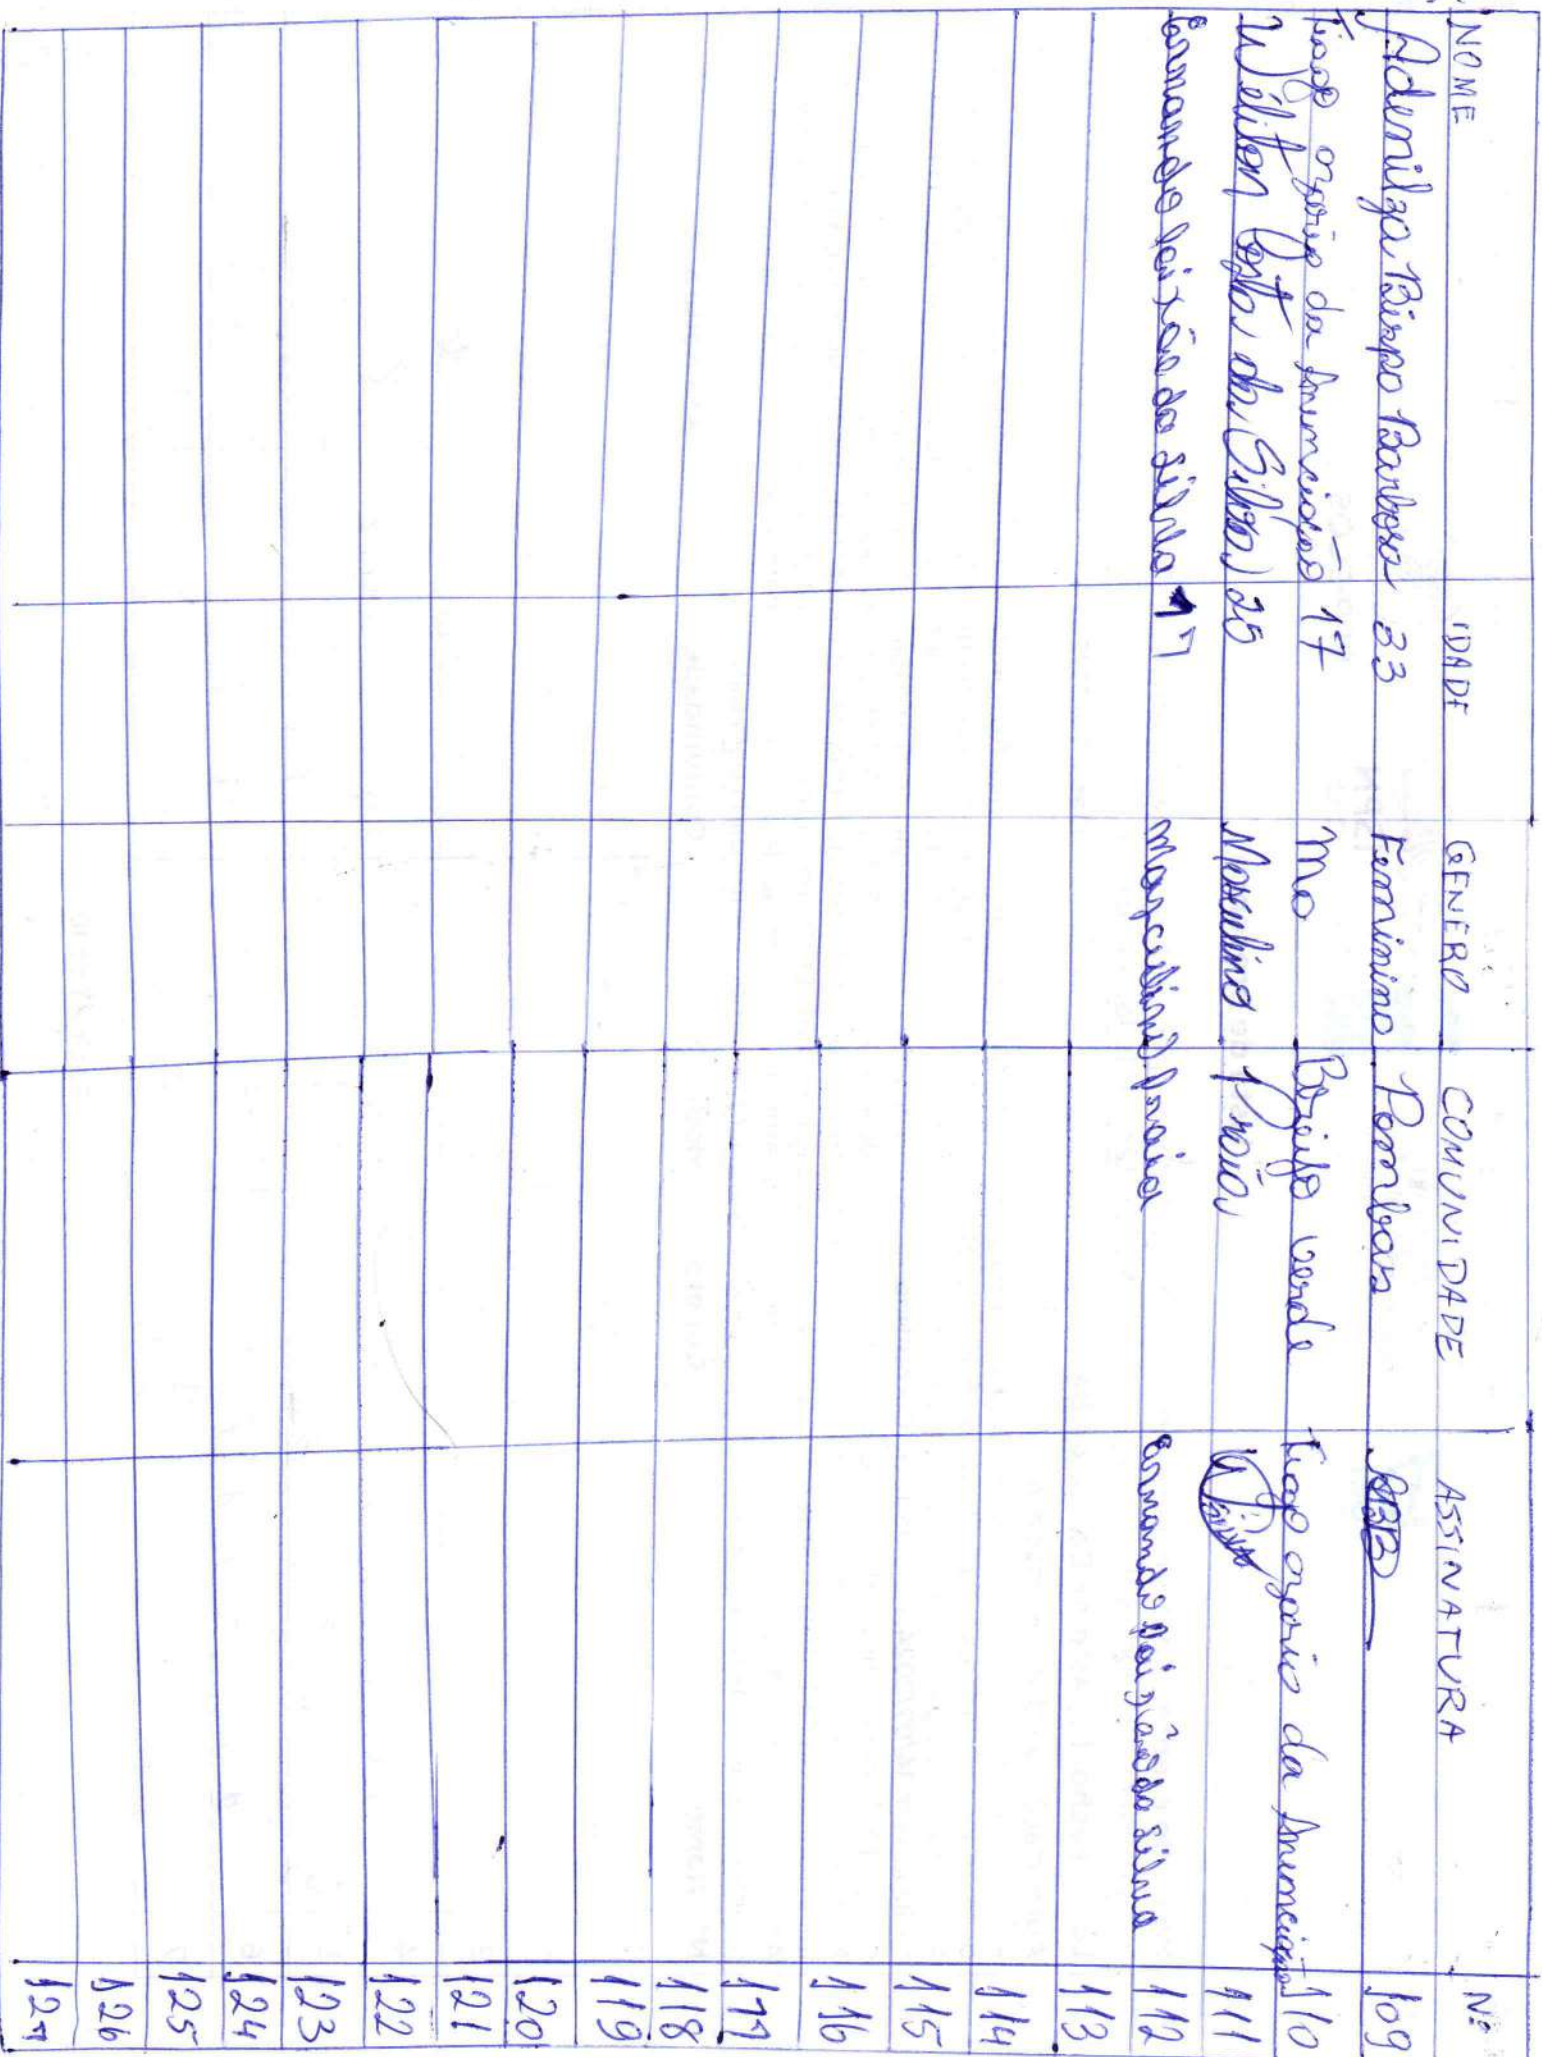 NOME IDADE GENERO COMUNIDADE ASSINATURA Nº
Adenilza Bispo Barbosa 33 Feminino Pombas ABB 109
Tiago ozorio da Anunciação 17 Mo Baixio verde Tiago ozorio da Anunciação 110
Wéliton Costa da Silva 25 Masculino Praia 111
Ermando Paixão da Silva 17 Masculino Praia Ermando Paixão da Silva 112
113
114
115
116
117
118
119
120
121
122
123
124
125
126
127